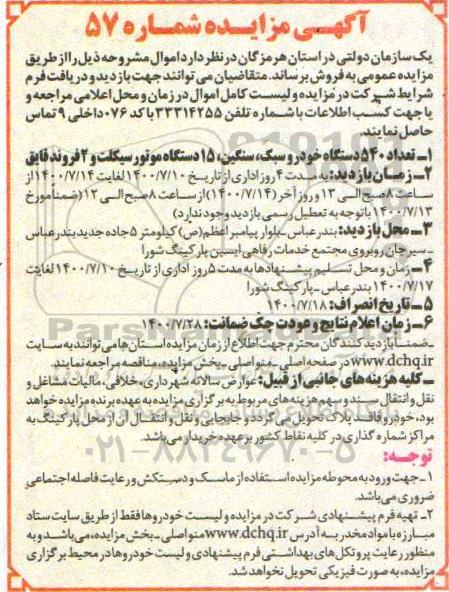 آگهـی مزایـده شمـاره ۵۷
یک سازمان دولتی در استان هرمزگان در نظر دارد اموال مشروحه ذیل را از طریق
مزایده عمومی به فروش برساند. متقاضیان می توانند جهت بازدید و دریافت فرم
شرایط شرکت در مزایده و لیست کامل اموال در زمان و محل اعلامی مراجعه و
یا جهت کسب اطلاعات با شماره تلفن ۳۳۳۱۴۲۵۵ با کد ۰۷۶ داخلی ۹ تماس
حاصل نمایند.
۱ـ تعداد ۵۴۰ دستگاه خودرو سبک، سنگین، ۱۵ دستگاه موتور سیکلت و ۲ فروند قایق
۲ـ زمـان بازدید: به مدت ۴ روز اداری از تاریخ ۱۴۰۰/۷/۱۰ لغایت ۱۴۰۰/۷/۱۴ از
ساعت ۸ صبح الی ۱۳ و روز آخر (۱۴۰۰/۷/۱۴) از ساعت ۸ صبح الی ۱۲ (ضمناً مورخ
۱۴۰۰/۷/۱۳ با توجه به تعطیل رسمی بازدید وجود ندارد)
۳ـ محل بازدید: بندرعباس ـ بلوار پیامبر اعظم(ص) کیلومتر ۵ جاده جدید بندرعباس
ـ سیرجان روبروی مجتمع خدمات رفاهی ایسین پارکینگ شورا
۴ـ زمان و محل تسلیم پیشنهادها به مدت ۵ روز اداری از تاریخ ۱۴۰۰/۷/۱۰ لغایت
۱۴۰۰/۷/۱۷ بندرعباس ـ پارکینگ شورا
۵ ـ تاریخ انصراف: ۱۴۰۰/۷/۱۸
۶ـ زمان اعلام نتایج و عودت چک ضمانت: ۱۴۰۰/۷/۲۸
ـ ضمناً بازدیدکنندگان محترم جهت اطلاع از زمان مزایده استان ها می توانند به سایت
www.dchq.ir در صفحه اصلی ـ منو اصلی ـ بخش مزایده، مناقصه مراجعه نمایند.
ـ کلیه هزینه های جانبی از قبیل: عوارض سالانه شهرداری، خلافی، مالیات مشاغل و
نقل و انتقال سند و سهم هزینه های مربوط به برگزاری مزایده به عهده برنده مزایده خواهد
بود، خودرو فاقد پلاک تحویل می گردد و جابجایی و نقل و انتقال آن از محل پارکینگ به
مراکز شماره گذاری در کلیه نقاط کشور بر عهده خریدار می باشد.
توجـه:
۱ـ جهت ورود به محوطه مزایده استـفاده از ماسک و دستکش و رعایت فاصله اجتماعی
ضروری می باشد.
۲ـ تهیه فرم پیشنهادی شرکت در مزایده و لیست خودروها فقط از طریق سایت ستاد
مبارزه با مواد مخدر به آدرس www.dchq.ir منو اصلی ـ بخش مزایده، می باشد و به
منظور رعایت پروتکل های بهداشتی فرم پیشنهادی و لیست خودروها در محیط برگزاری
مزایده، به صورت فیزیکی تحویل نخواهد شد.
۰۲۱-۸۸۳۴۹۶۷۰-۵